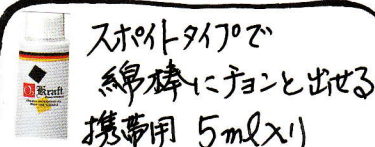 O2 Kraft
スポイトタイプで
綿棒にチョンと出せる
携帯用 5ml入り